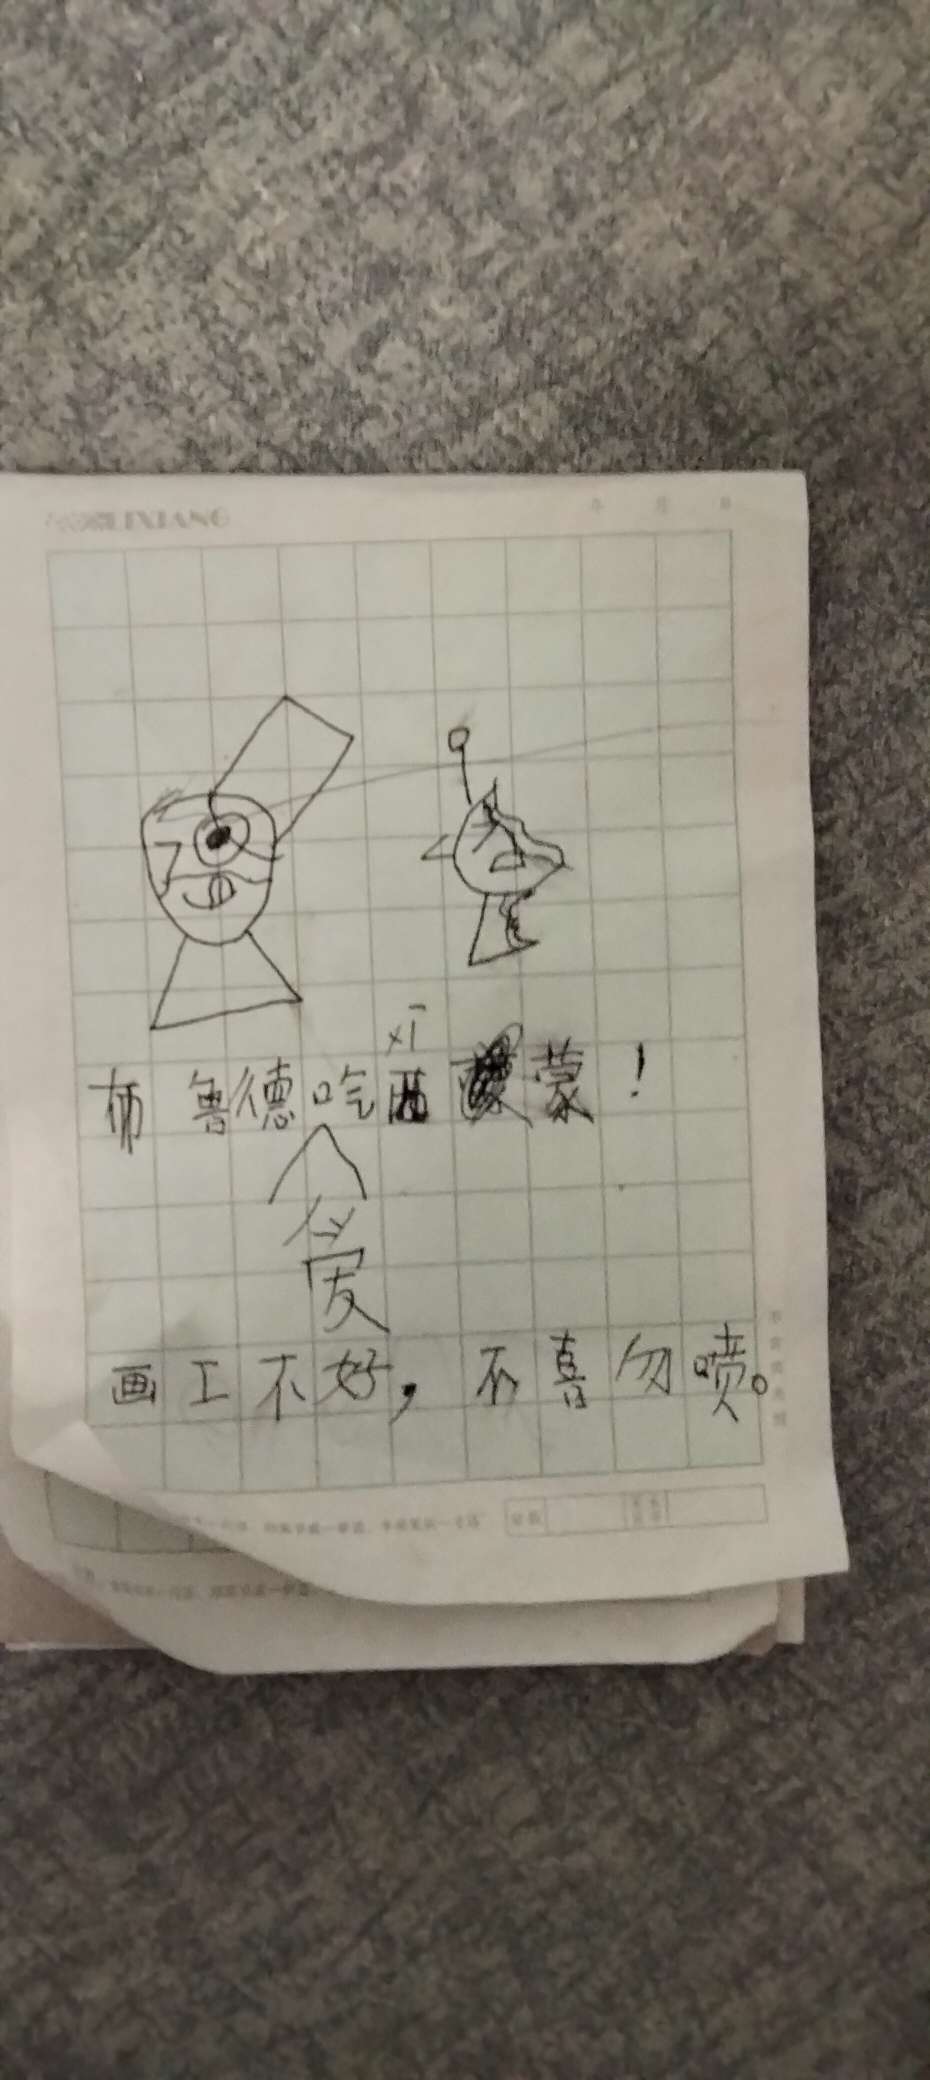 年 月 日
xī
布鲁德吃西蒙!
爱
画工不好,不喜勿喷。